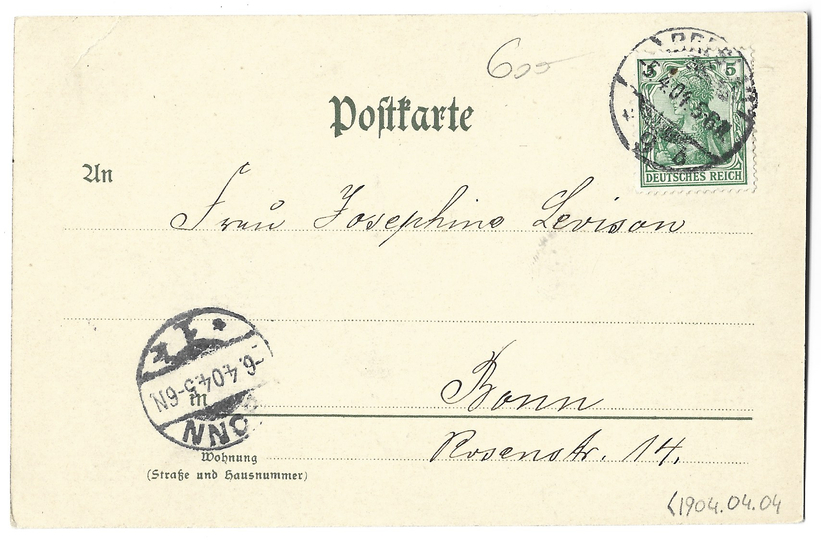 600
5
DEUTSCHES REICH
Postkarte
An
Frau Josephine Levison
-6.4.04.5-6N.
in
BONN
Bonn
Rosenstr. 14.
Wohnung
(Straße und Hausnummer)
(1904.04.04